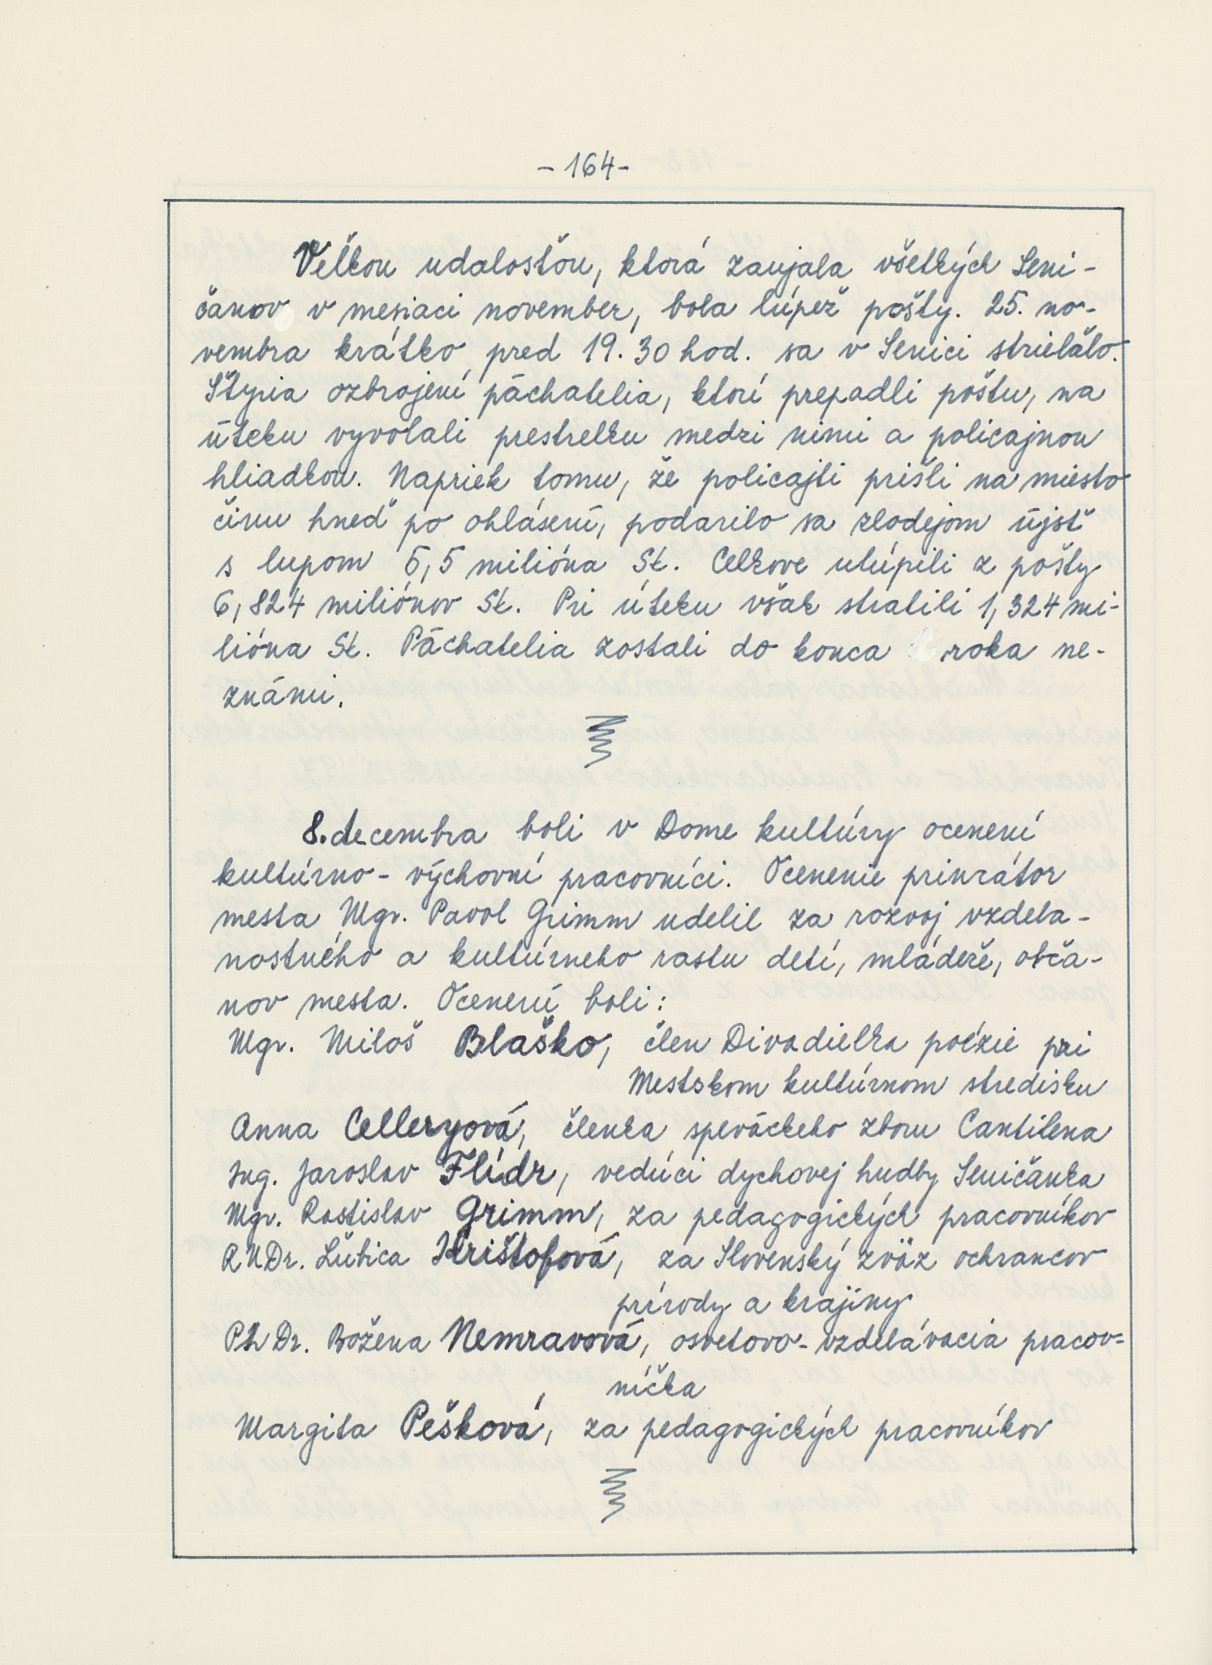 - 164 -
Veľkou udalosťou, ktorá zaujala všetkých Seni-
čanov v mesiaci november, bola lúpež pošty. 25. no-
vembra krátko pred 19.30 hod. sa v Senici strieľalo.
Štyria ozbrojení páchatelia, ktorí prepadli poštu, na
úteku vyvolali prestrelku medzi nimi a policajnou
hliadkou. Napriek tomu, že policajti prišli na miesto
činu hneď po ohlásení, podarilo sa zlodejom újsť
s lupom 5,5 milióna Sk. Celkove ulúpili z pošty
6,824 miliónov Sk. Pri úteku však stratili 1,324 mi-
lióna Sk. Páchatelia zostali do konca roka ne-
známi.
8. decembra boli v Dome kultúry ocenení
kultúrno-výchovní pracovníci. Ocenenie primátor
mesta Mgr. Pavol Grimm udelil za rozvoj vzdela-
nostného a kultúrneho rastu detí, mládeže, obča-
nov mesta. Ocenení boli:
Mgr. Miloš Blaško, člen Divadielka poézie pri
Mestskom kultúrnom stredisku
Anna Celleryová, členka speváckeho zboru Cantilena
Ing. Jaroslav Flídr, vedúci dychovej hudby Seničanka
Mgr. Rastislav Grimm, za pedagogických pracovníkov
RNDr. Ľubica Krištofová, za Slovenský zväz ochrancov
prírody a krajiny
PhDr. Božena Nemravová, osvetovo-vzdelávacia pracov-
níčka
Margita Pešková, za pedagogických pracovníkov